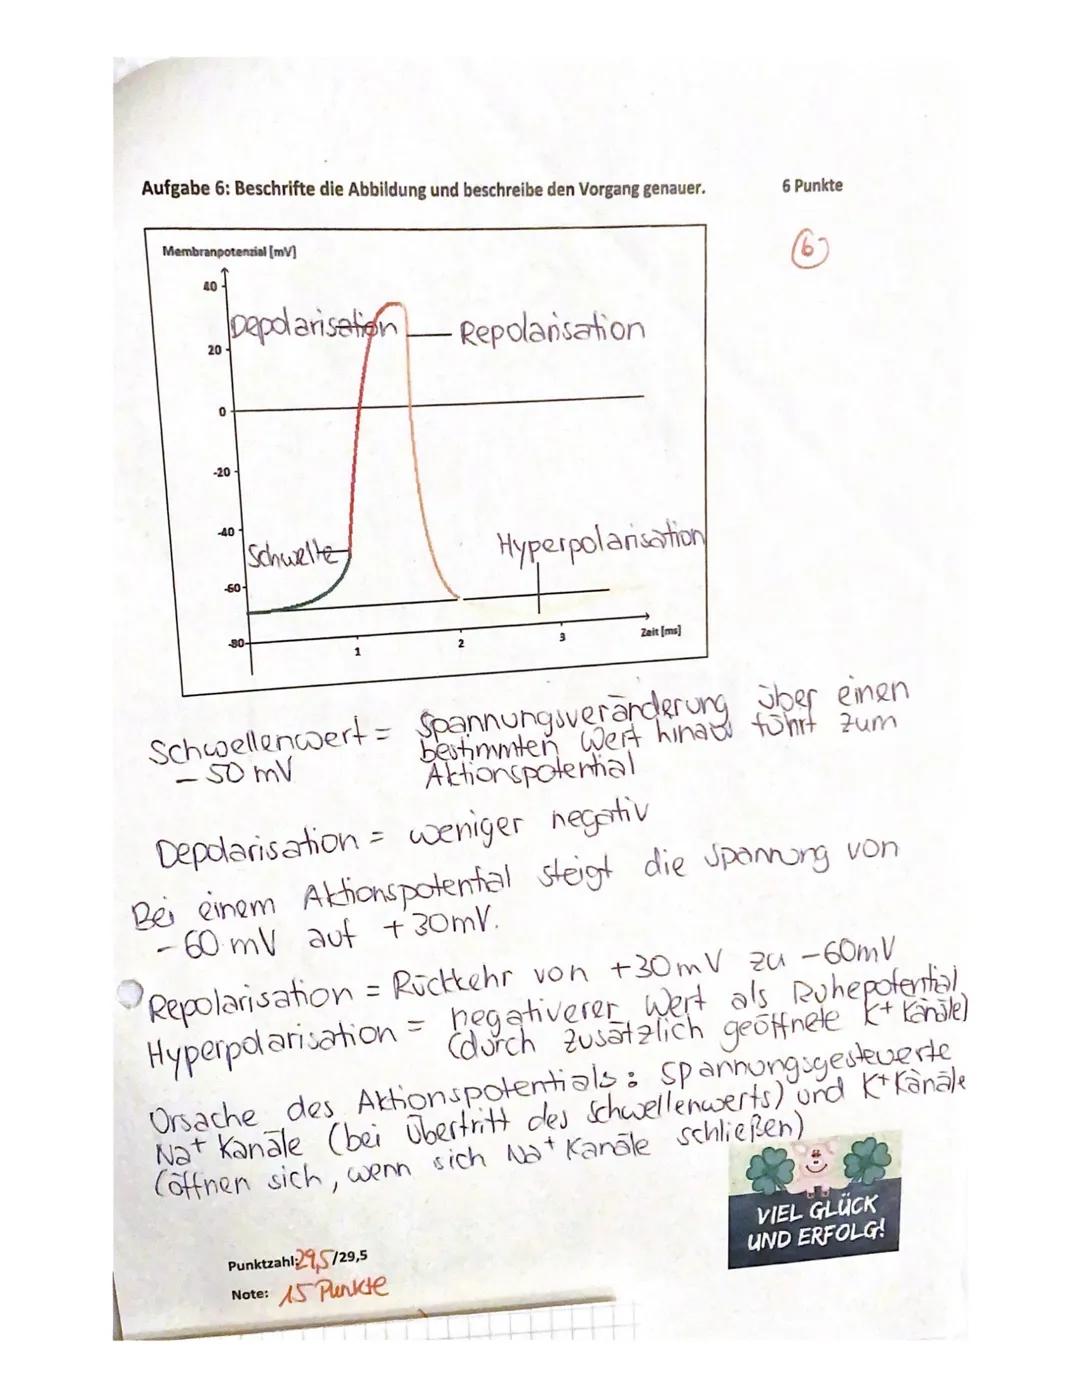 Aufgabe 6: Beschrifte die Abbildung und beschreibe den Vorgang genauer. 6 Punkte
6
Membranpotenzial [mV]
40
Depolarisation Repolarisation
20
0
-20
-40
Schwelle Hyperpolarisation
-60
-80
1 2 3 Zeit [ms]
Schwellenwert = Spannungsveränderung über einen
bestimmten Wert hinaus führt zum
- 50 mV Aktionspotential
Depolarisation = weniger negativ
Bei einem Aktionspotential steigt die Spannung von
- 60 mV auf +30mV.
Repolarisation = Rückkehr von +30mV zu -60mV
Hyperpolarisation = negativerer Wert als Ruhepotential
(durch zusätzlich geöffnete K+ Kanäle)
Ursache des Aktionspotentials: spannungsgesteuerte
Na+ Kanäle (bei Übertritt des Schwellenwerts) und K+ Kanäle
(öffnen sich, wenn sich Na+ Kanäle schließen)
VIEL GLÜCK
UND ERFOLG!
Punktzahl: 29,5/29,5
Note: 15 Punkte